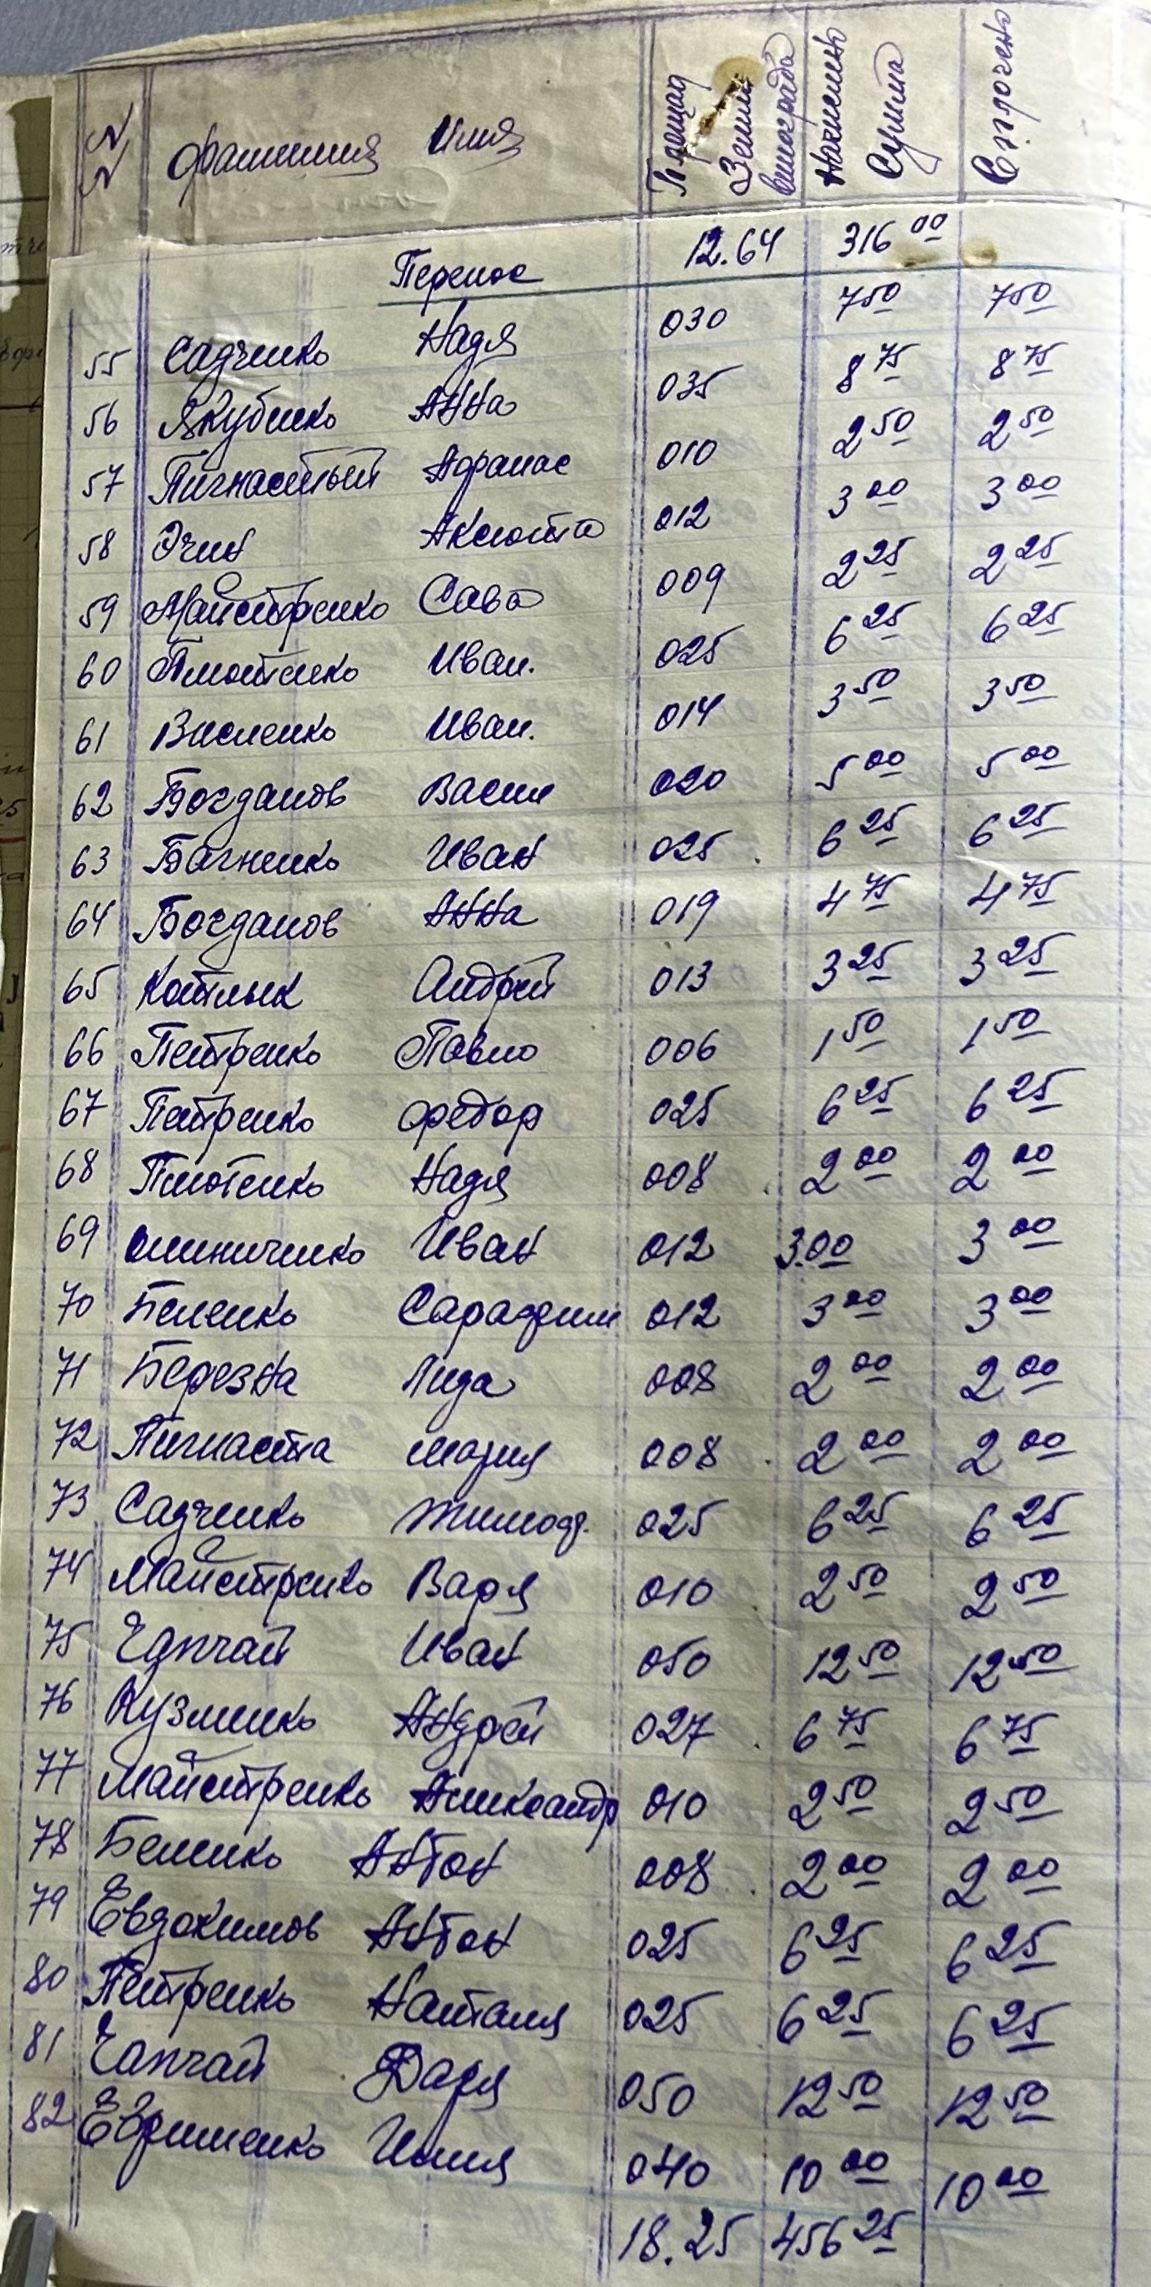 №№ Фамилия Имя Площад Земли винограда Начислено Сумма Сплочено
Перенос 12.64 316 00
55 Садченко Надя 030 7 50 7 50
56 Якубенко Анна 035 8 75 8 75
57 Пигнастый Афанас 010 2 50 2 50
58 Очин Аксютта 012 3 00 3 00
59 Майстренко Сава 009 2 25 2 25
60 Плотенко Иван. 025 6 25 6 25
61 Висленко Иван. 014 3 50 3 50
62 Богданов Васил 020 5 00 5 00
63 Багненко Иван 025 6 25 6 25
64 Богданов Анна 019 4 75 4 75
65 Котлык Андрей 013 3 25 3 25
66 Петренко Павло 006 1 50 1 50
67 Петренко Федор 025 6 25 6 25
68 Плотенко Надя 008 2 00 2 00
69 Олиниченко Иван 012 3.00 3 00
70 Беленко Сарафим 012 3 00 3 00
71 Березна Лида 008 2 00 2 00
72 Пигнаста Мария 008 2 00 2 00
73 Садченко Тимоф. 025 6 25 6 25
74 Майстренко Варя 010 2 50 2 50
75 Чапчай Иван 050 12 50 12 50
76 Кузменко Андрей 027 6 75 6 75
77 Майстренко Александр 010 2 50 2 50
78 Беленко Антон 008 2 00 2 00
79 Евдокимов Антон 025 6 25 6 25
80 Петренко Наталя 025 6 25 6 25
81 Чапчай Даря 050 12 50 12 50
82 Ефрименко Илия 040 10 00 10 00
18.25 456 25